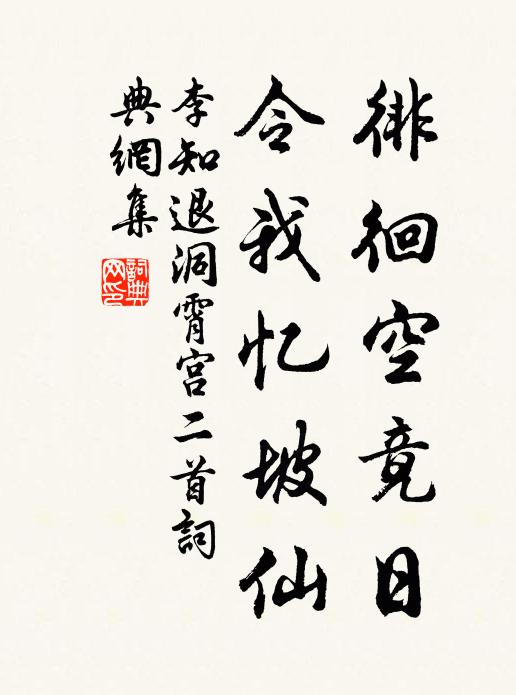 徘徊空竟日
令我忆坡仙
李知退洞霄宫二首詞
典網集
詞典
网印